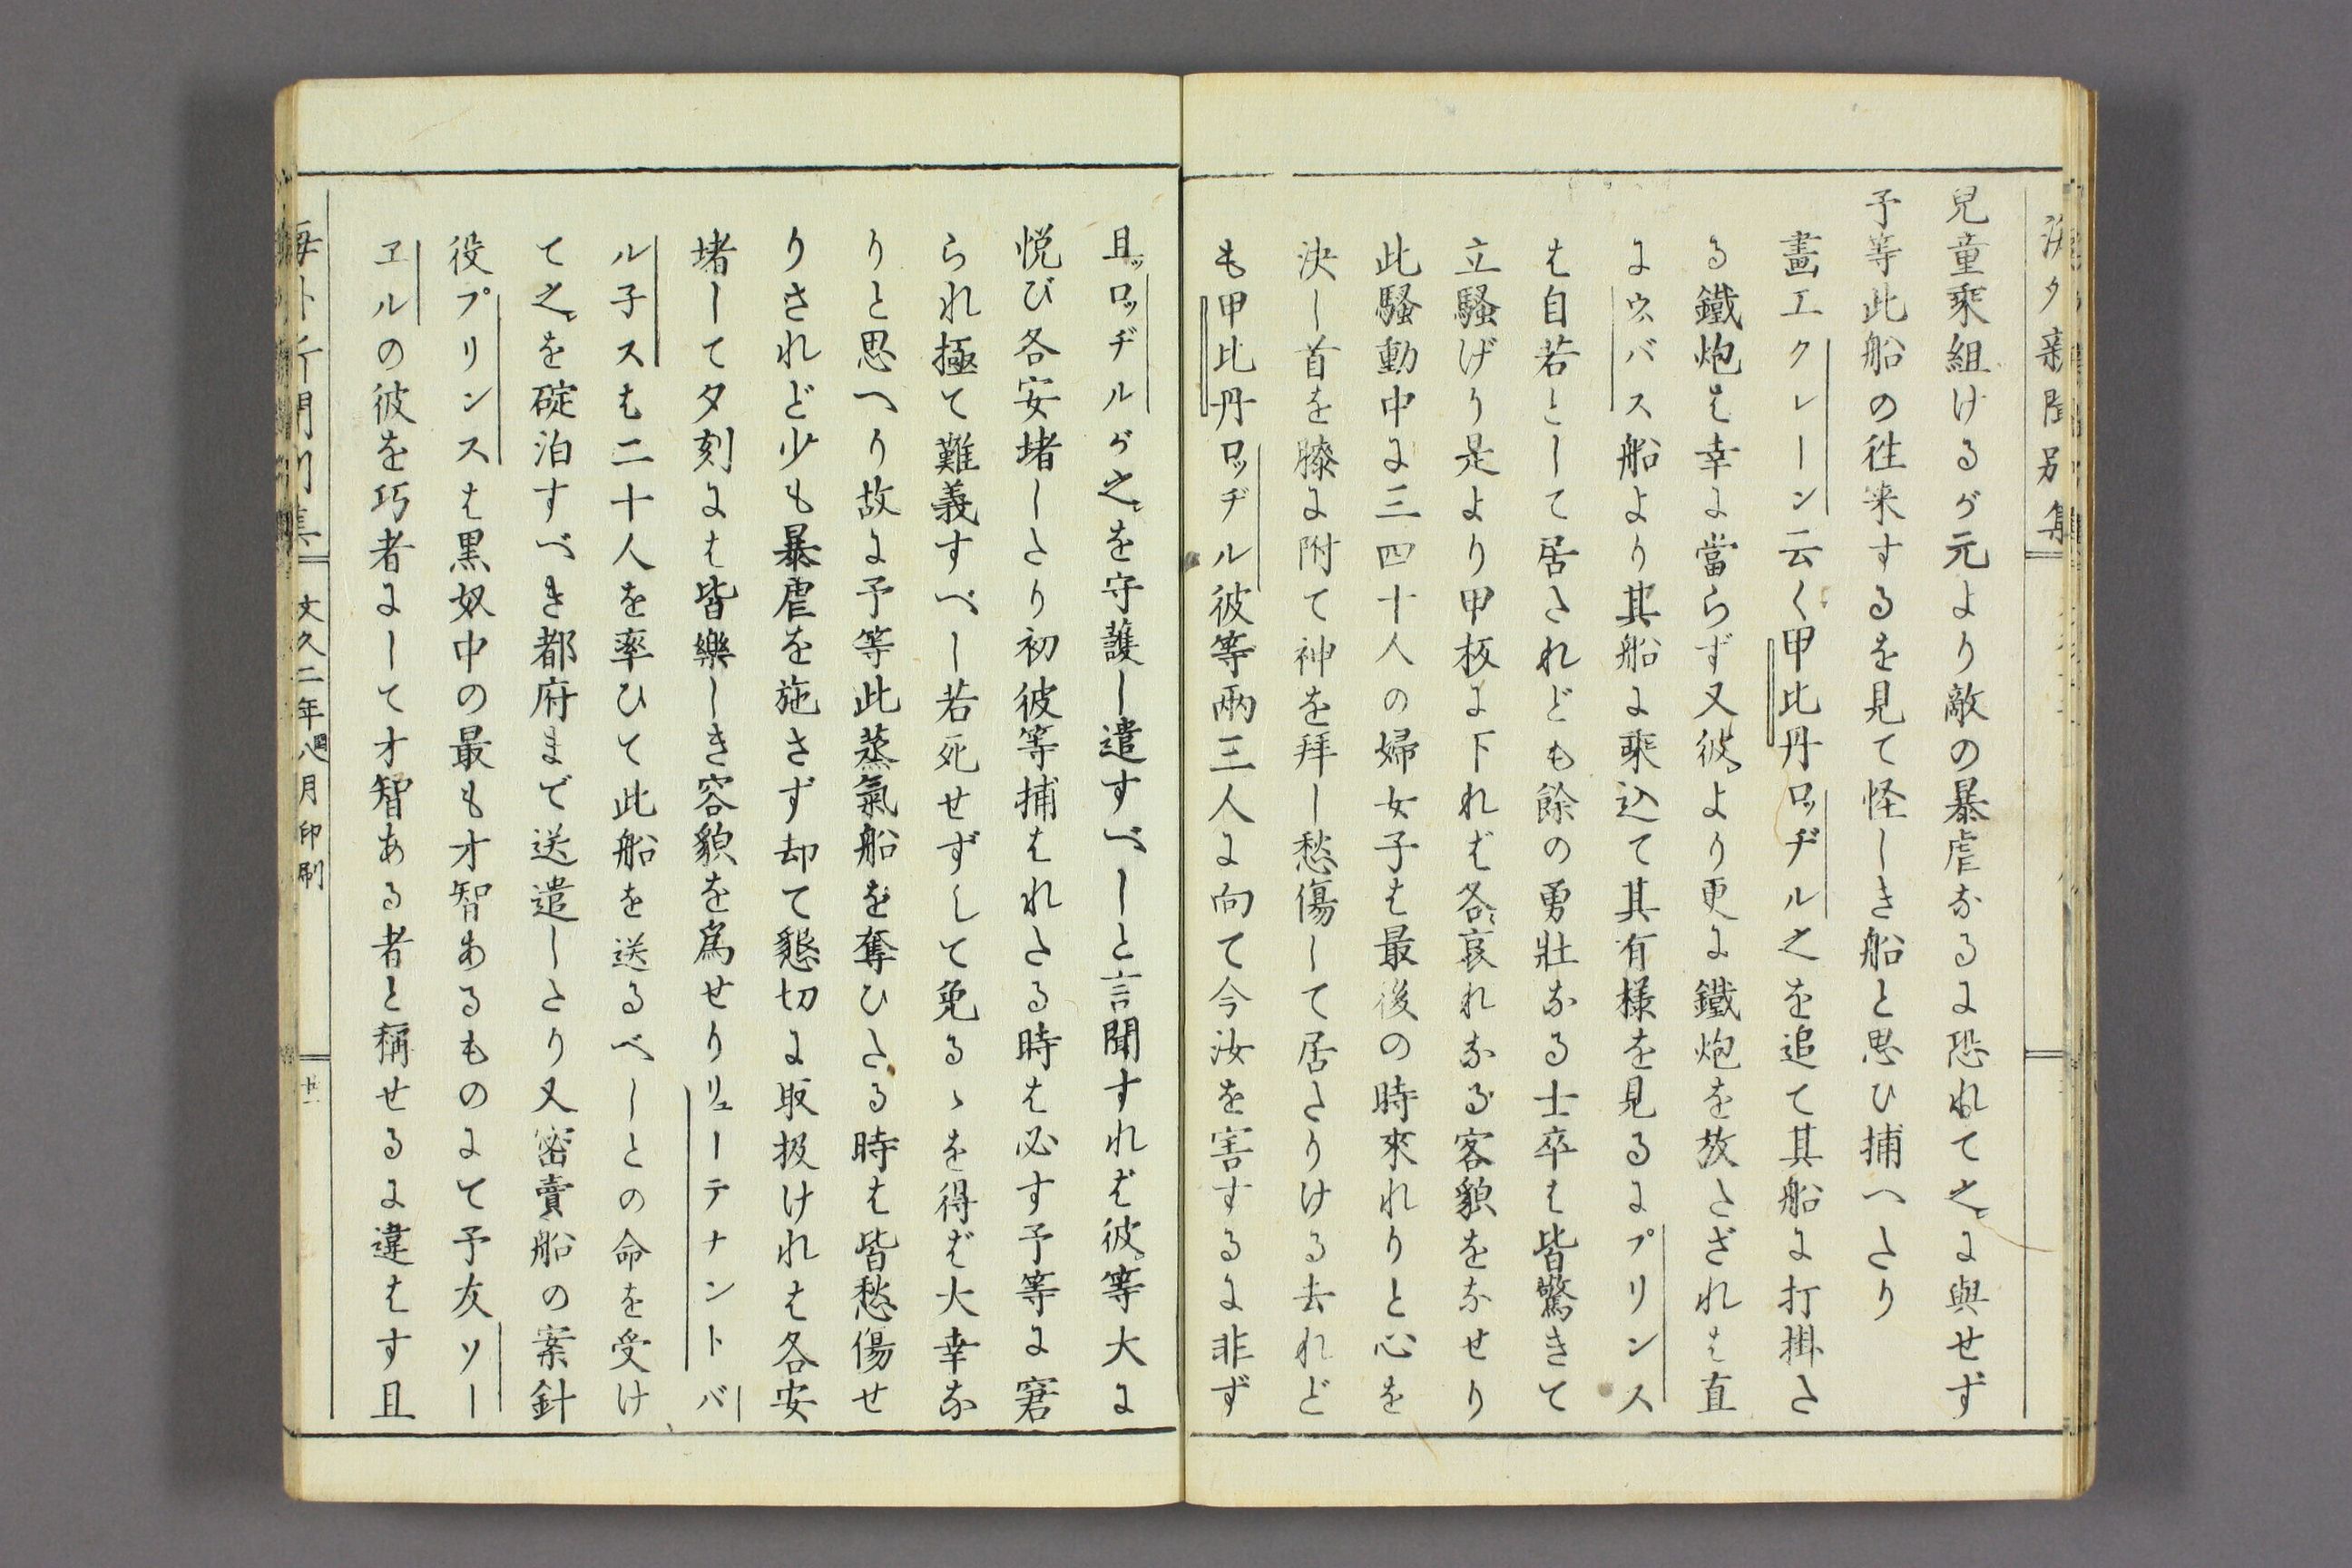 海外新聞別集
兒童乘組けるが元より敵の暴虐なるに恐れて之に與せず
予等此船の徃来するを見て怪しき船と思ひ捕へたり
畵工クレーン云く甲比丹ロッヂル之を追て其船に打掛た
る鐵炮は幸に當らず又彼より更に鐵炮を放たざれは直
にウバス船より其船に乘込て其有様を見るにプリンス
は自若として居たれども餘の勇壯なる士卒は皆驚きて
立騷げり是より甲板に下れば各哀れなる客貌をなせり
此騷動中に三四十人の婦女子は最後の時來れりと心を
決し首を膝に附て神を拜し愁傷して居たりける去れど
も甲比丹ロッヂル彼等兩三人に向て今汝を害するに非ず
且ッロッヂルが之を守護し遣すべしと言聞すれば彼等大に
悦び各安堵したり初彼等捕はれたる時は必す予等に窘
られ極て難義すべし若死せずして免るゝを得ば大幸な
りと思へり故に予等此蒸氣船を奪ひたる時は皆愁傷せ
りされど少も暴虐を施さず却て懇切に取扱けれは各安
堵して夕刻には皆樂しき容貌を爲せりリューテナントバ
ル子スも二十人を率ひて此船を送るべしとの命を受け
て之を碇泊すべき都府まで送遣したり又密賣船の案針
役プリンスは黒奴中の最も才智あるものにて予友ソー
ヱルの彼を巧者にして才智ある者と稱せるに違はす且
海外新聞別集 文久二年閏八月印刷 廿一